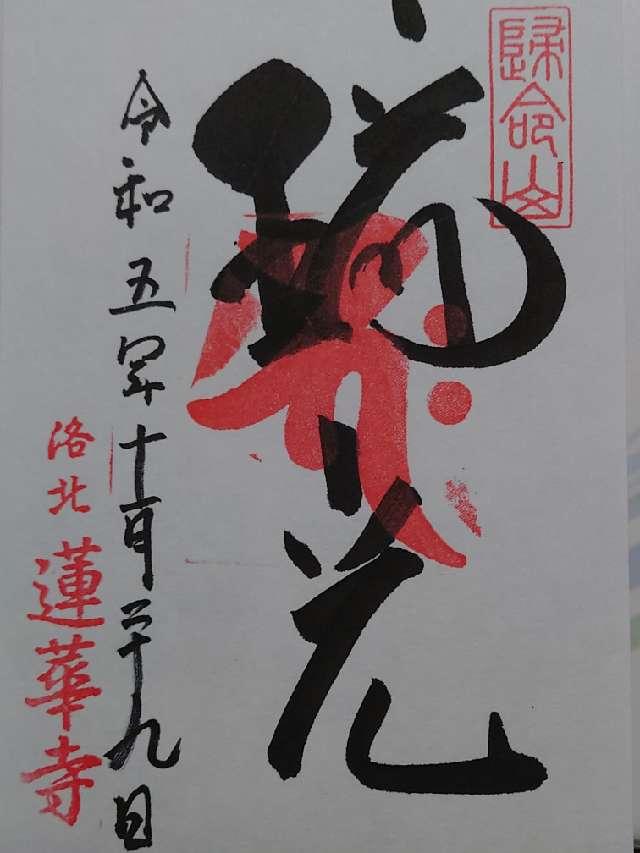 歸命山
花
令和五年十一月二十九日
洛北
蓮華寺